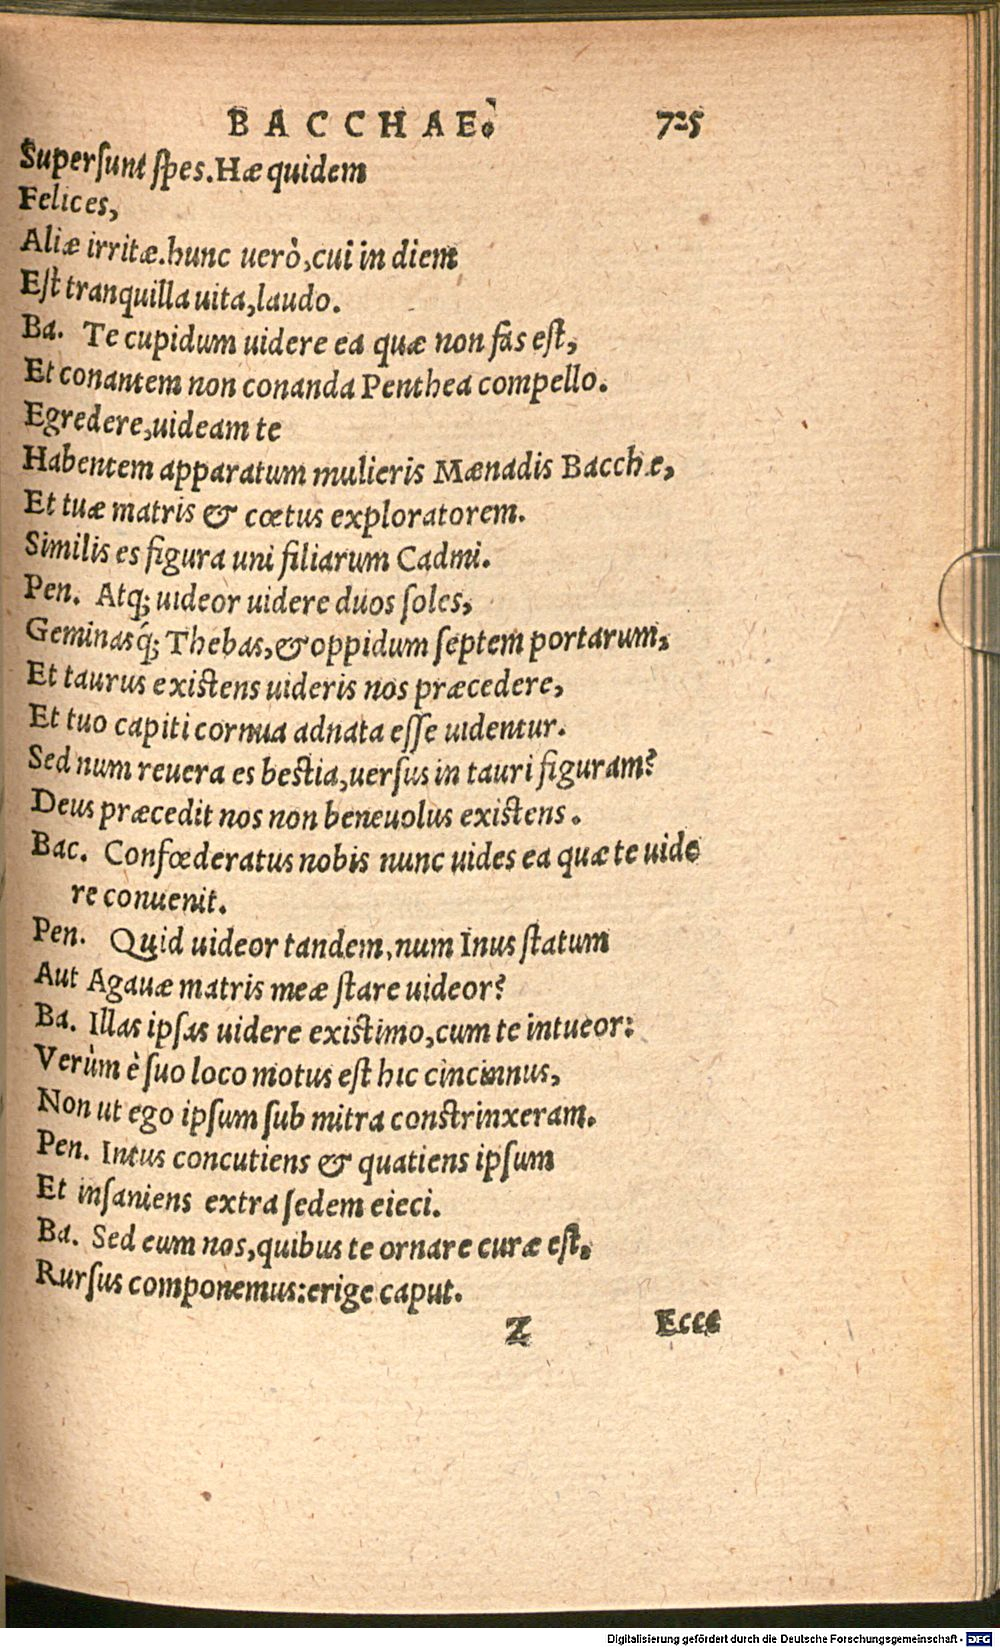 BACCHAE. 725
Superſunt ſpes. Hæ quidem
Felices,
Aliæ irritæ. hunc uerò, cui in diem
Eſt tranquilla uita, laudo.
Ba. Te cupidum uidere ea quæ non fas eſt,
Et conantem non conanda Penthea compello.
Egredere, uideam te
Habentem apparatum mulieris Mænadis Bacchæ,
Et tuæ matris & cœtus exploratorem.
Similis es figura uni filiarum Cadmi.
Pen. Atq; uideor uidere duos ſoles,
Geminasq́; Thebas, & oppidum ſeptem portarum,
Et taurus exiſtens uideris nos præcedere,
Et tuo capiti cornua adnata eſſe uidentur.
Sed num reuera es beſtia, uerſus in tauri figuram?
Deus præcedit nos non beneuolus exiſtens.
Bac. Confœderatus nobis nunc uides ea quæ te uide
re conuenit.
Pen. Quid uideor tandem, num Inus ſtatum
Aut Agauæ matris meæ ſtare uideor?
Ba. Illas ipſas uidere exiſtimo, cum te intueor:
Verùm è ſuo loco motus eſt hic cincinnus,
Non ut ego ipſum ſub mitra conſtrinxeram.
Pen. Intus concutiens & quatiens ipſum
Et inſaniens extra ſedem eieci.
Ba. Sed eum nos, quibus te ornare curæ eſt,
Rurſus componemus: erige caput.
Z Ecce
Digitalisierung gefördert durch die Deutsche Forschungsgemeinschaft - DFG